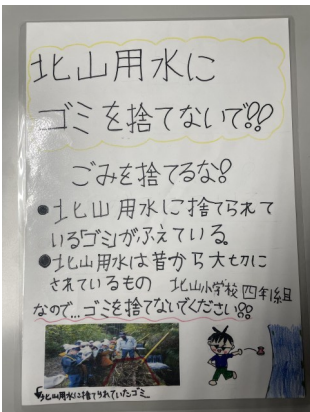 北山用水に
ゴミを捨てないで!!
ごみを捨てるな!
●北山用水に捨てられて
いる「ゴミ」がふえている。
●北山用水は昔から大切に
されているもの
北山小学校 四年1組
なので…ゴミを捨てないでください!!
北山用水に捨てられていたゴミ…